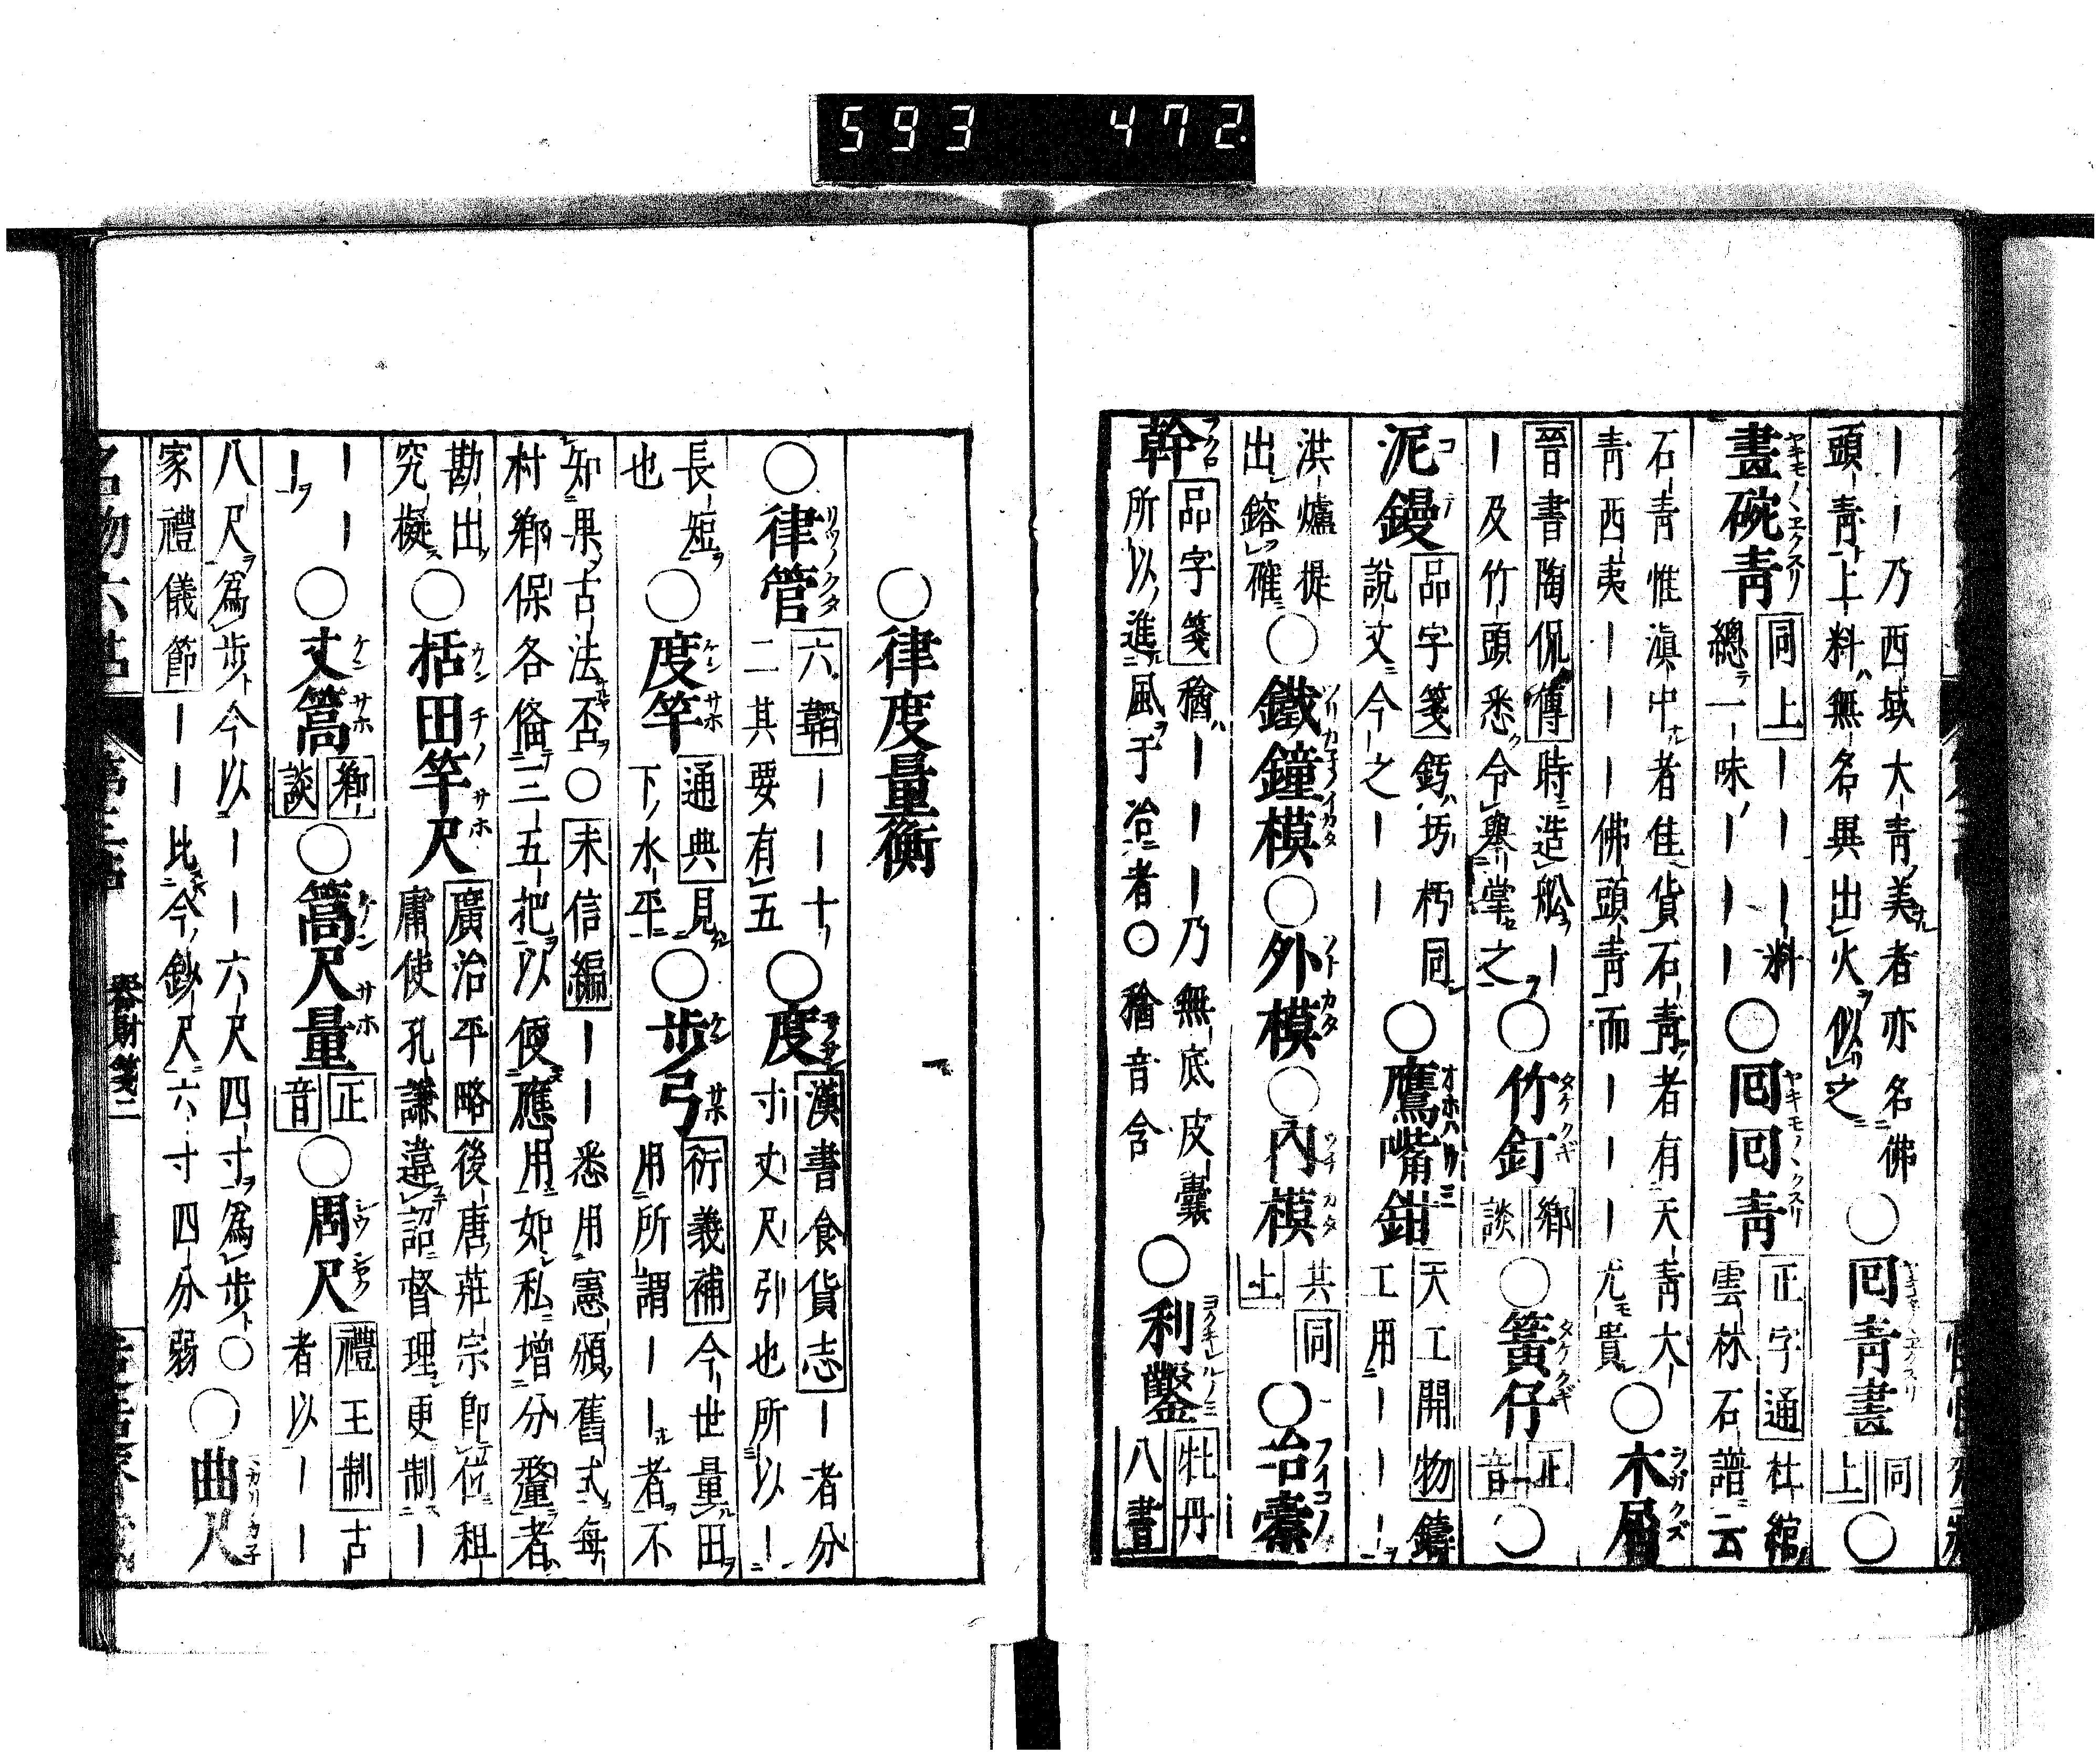 593 472.
――乃西域大青美者亦名佛
頭青上料無名異出火似之
○回青畫
同上
○
畫碗青
同上
――――料
總一味――――
○回回青
正字通
杜綰
雲林石譜云
石青惟滇中者佳貨石青者有天青大
青西夷――――佛頭青而――――尤貴
○木屑
晉書陶侃傳
時造舩―
―及竹頭悉令擧掌之
○竹釘
鄉談
○簧仔
正音
○
泥鏝
品字箋
鈣圬杇同
說文今之――
○鷹嘴鉗
天工開物
鑄
工用――――
洪爐提
出鎔礶
○鐵鐘模
○外模
○內模
共同上
○冶橐
幹
品字箋
――――乃無底皮囊
所以進風于冶者○音含
○利鑿
牡丹
八書
○律度量衡
○律管
六韜
――十
二其要有五
○度
漢書食貨志
―者分
寸丈尺引也所以―
長短
也
○度竿
通典
見
下水平
○步弓
衍義補
今世量田
用所謂――者不
知果古法否○
未信編
――悉用憲頒舊式每
村鄉保各備三五把以便應用如私增分釐者
勘出
究擬
○括田竿尺
廣治平略
後唐莊宗卽位租
庸使孔謙違詔督理更制―
――
―
○丈篙
鄉談
○篙尺量
正音
○周尺
禮王制
古
者以――
八尺爲步今以――六尺四寸爲步○
家禮儀節
――比今鈔尺六寸四分弱
○曲尺
名物六帖
第三帖
器財箋二